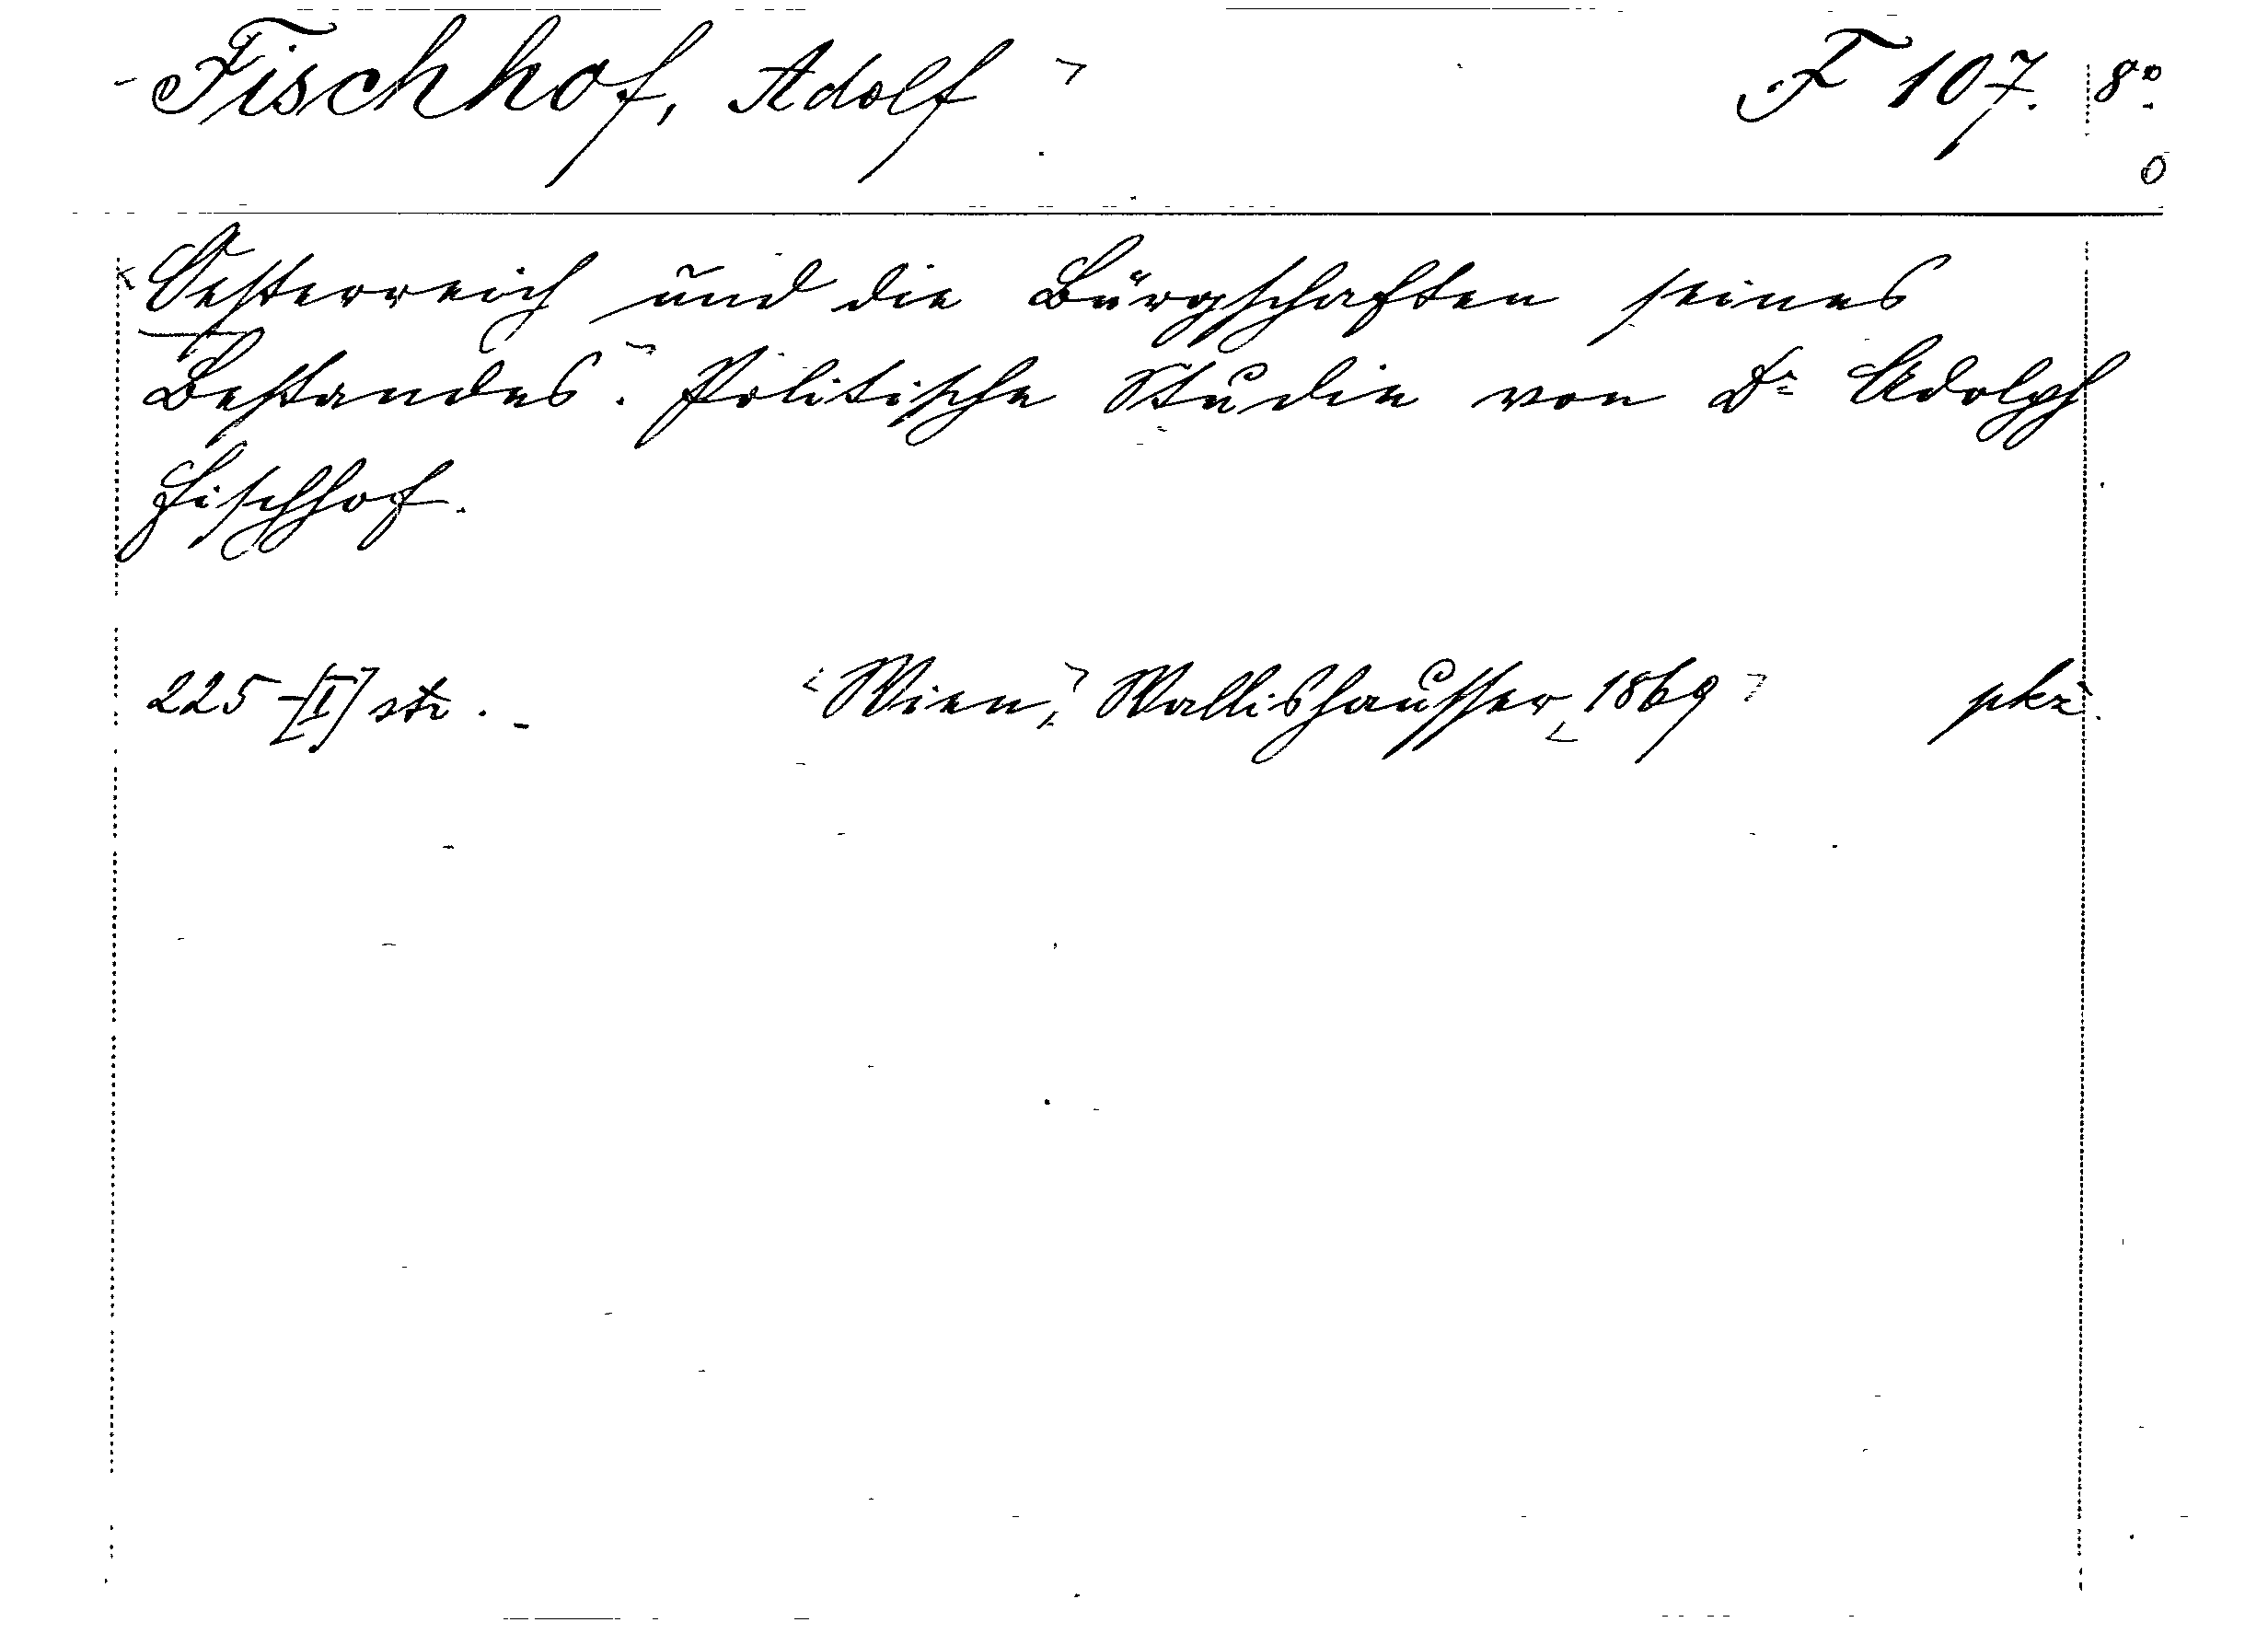 Fischhof, Adolf F 107. 8º.
Oesterreich und die Bürgschaften seines
Bestandes. Politische Studie von Dr Adolph
Fischhof.
225-[I] str. Wien, Wallishausser, 1869 pkž.